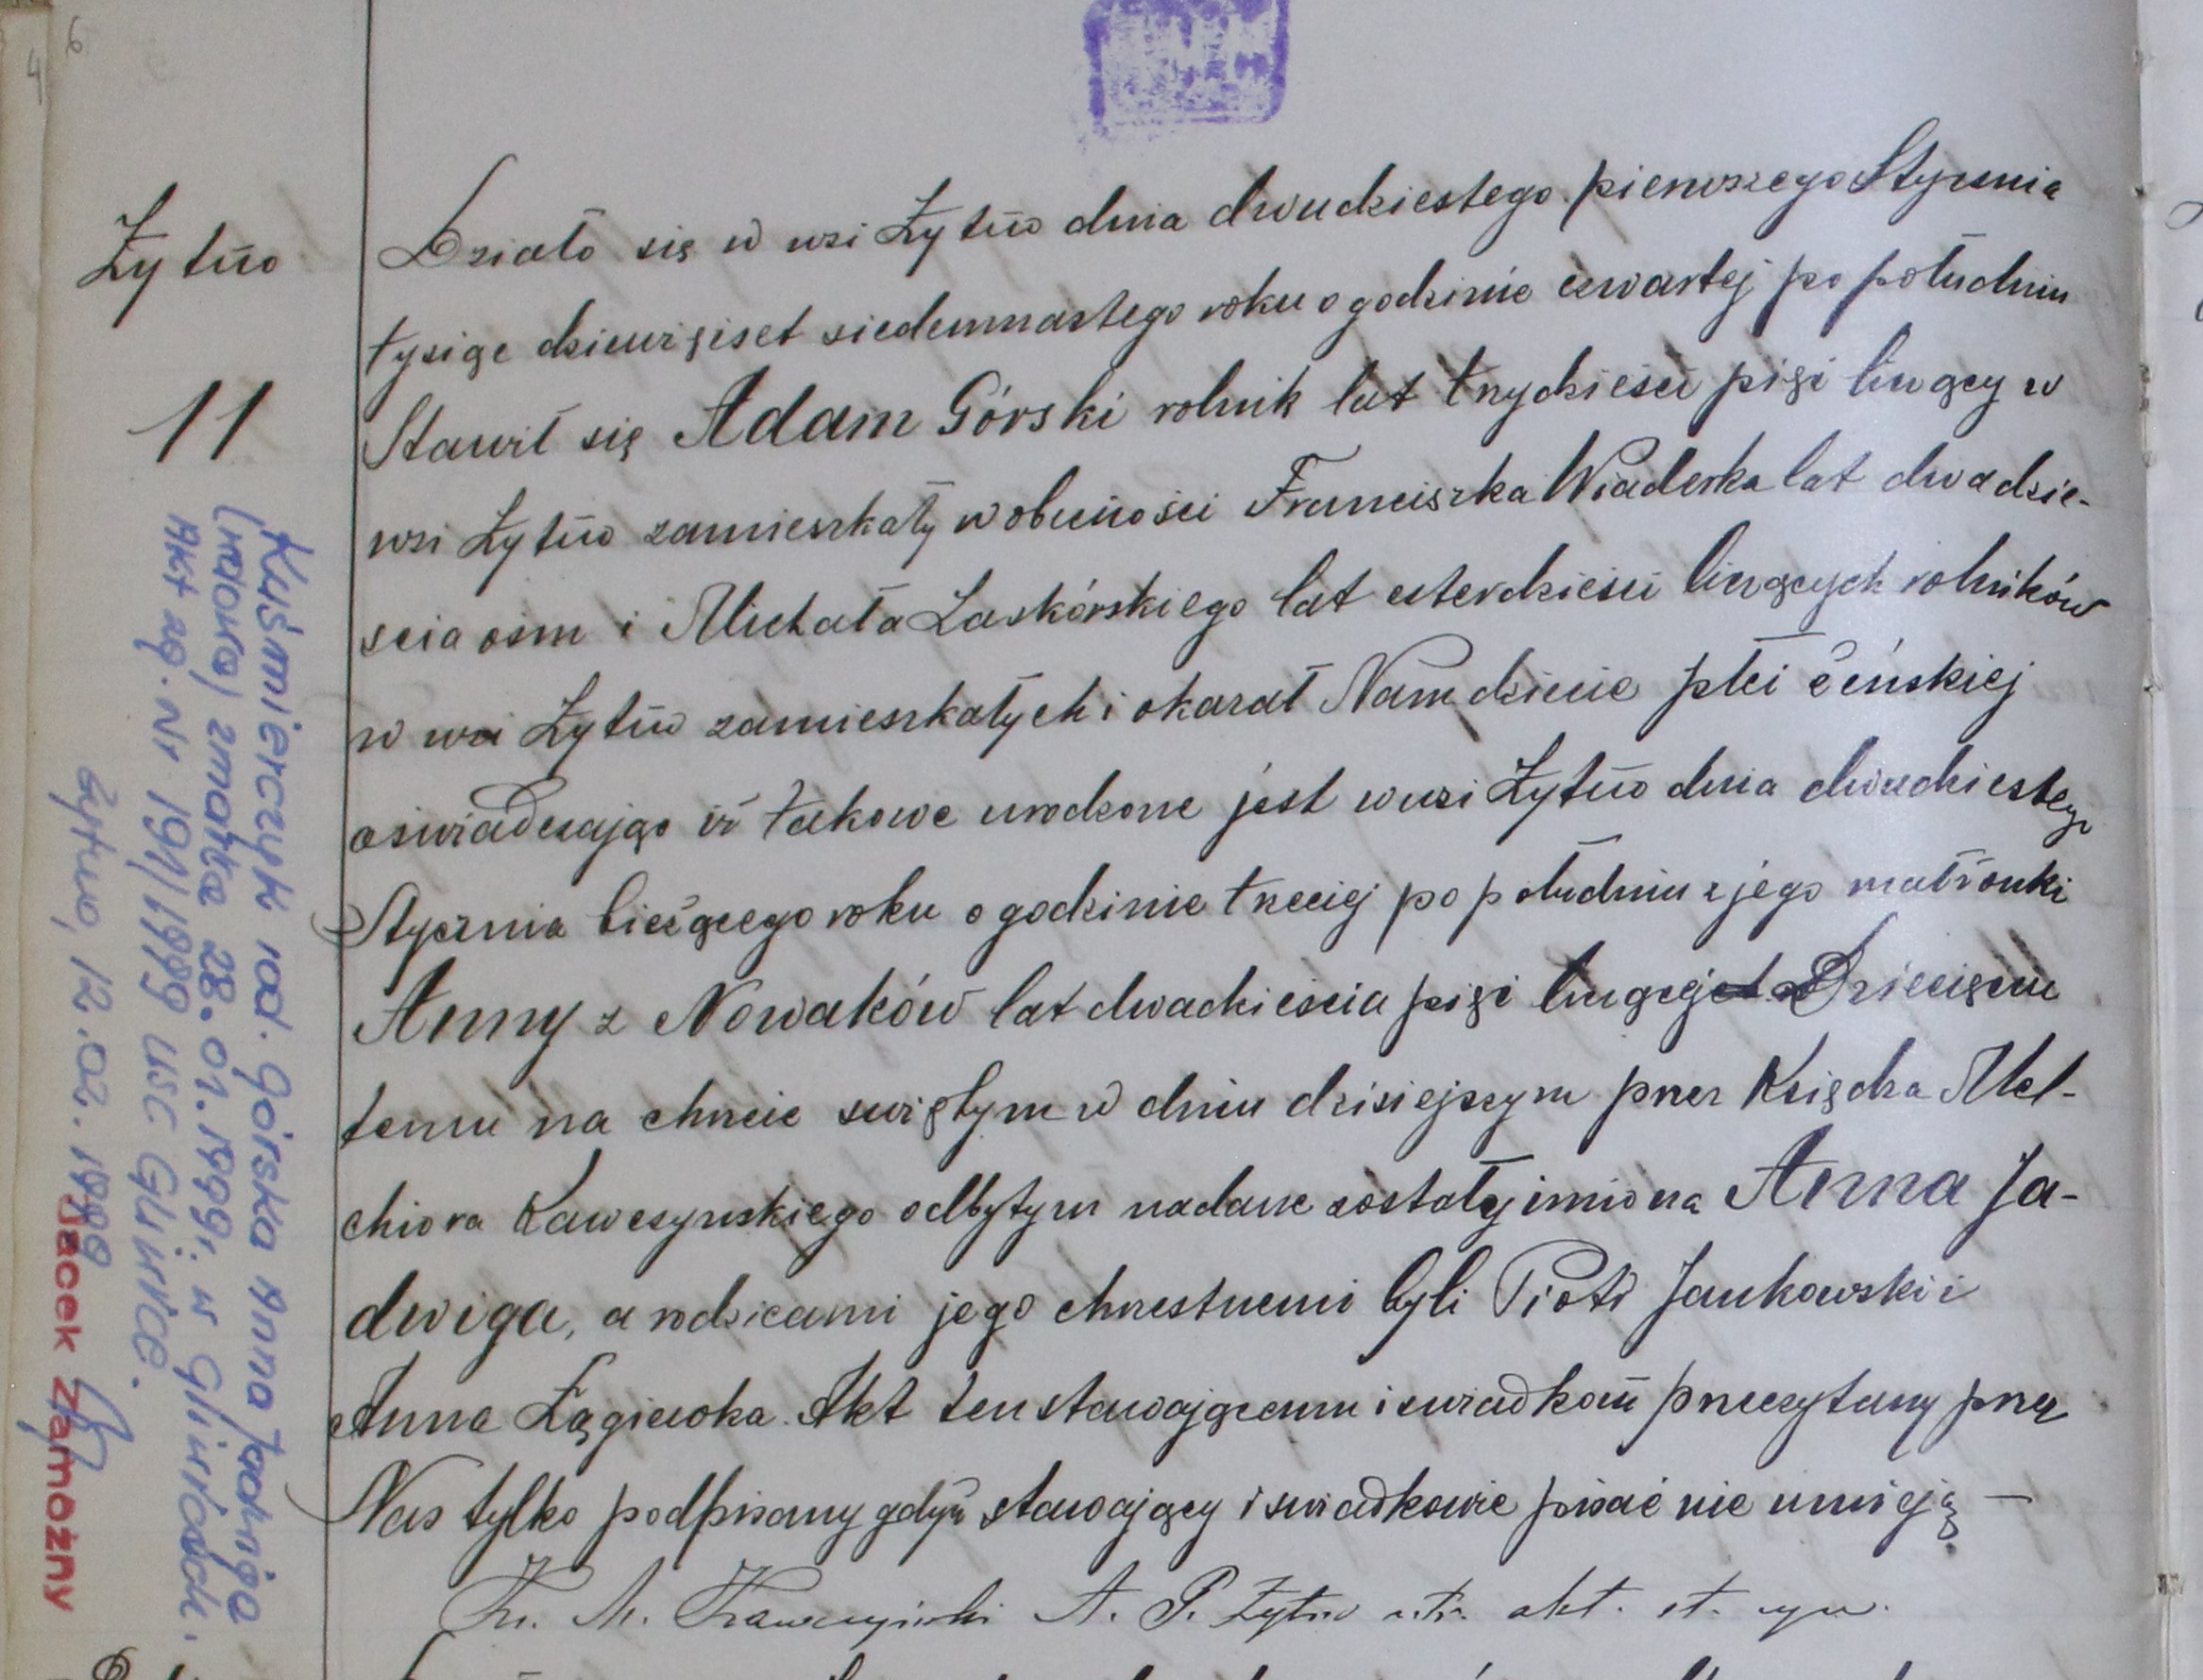 6
4
Żytno
11
Działo się w wsi Żytno dnia dwudziestego pierwszego Stycznia
tysiąc dziewięćset siedemnastego roku o godzinie czwartej po południu
Stawił się Adam Górski rolnik lat trzydzieści pięć liczący w
wsi Żytno zamieszkały w obecności Franciszka Wiaderka lat dwadzie-
scia osm i Michała Laskórskiego lat czterdzieści liczących rolników
w wsi Żytno zamieszkałych i okazał Nam dziecie płci żeńskiej
oswiadczając iż takowe urodzone jest w wsi Żytno dnia dwudziestego
Stycznia bieżącego roku o godzinie trzeciej po południu z jego małżonki
Anny z Nowaków lat dwadzieścia pięć liczącej Dziecięciu
temu na chrzcie swiętym w dniu dzisiejszym przez Księdza Mel-
chiora Kawczyńskiego odbytym nadane zostały imiona Anna Ja-
dwiga, a rodzicami jego chrzestnemi byli Piotr Jankowski i
Anna Łągiewka. Akt ten stawającemu i swiadkom przeczytany przez
Nas tylko podpisany gdyż stawający i swiadkowie pisać nie umieją —
Ks. M. Kawczyński A. P. Żytno utr. akt. st. cyw.
Kuśmierczyk rod. Górska Anna Jadwiga
(wdowa) zmarła 28.01.1999r. w Gliwicach.
Akt zg. Nr 191/1999 USC Gliwice.
Żytno, 12.02.1999
Jacek Zamożny